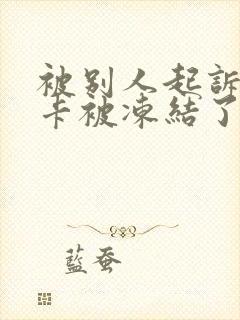 被别人起訴
卡被凍結了
藍蚕